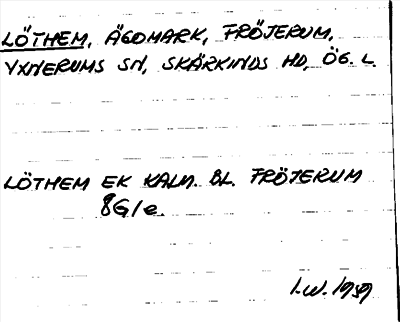 LÖTHEM, ÄGOMARK, FRÖJERUM,
YXNERUMS SN, SKÄRKINDS HD, ÖG. L.
LÖTHEM EK KALM. BL. FRÖJERUM
8G/e.
I.W. 1959